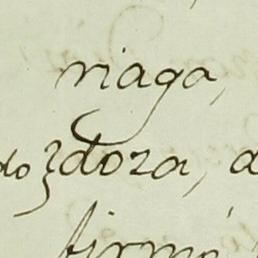 riaga,
do Zdoza, d
firmó